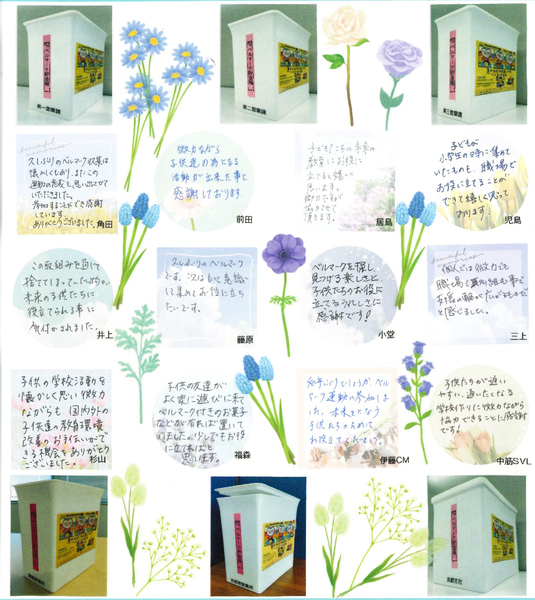 第一営業課
第二営業課
第三営業課
久しぶりのベルマーク収集は
懐かしくもあり、またこの
運動の意義を思い出させて
いただきました。
しています。
ありがとうございました。
角田
微力ながら
子供達の為になる
活動が出来た事に
感謝しております
前田
子どもたちの未来の
教育にお役に
立てると嬉しく
思います。
居島
子どもが
小学生の時に集めて
いたものを、職場で
お役に立てることが
できて嬉しく思って
おります。
児島
この取組みを通じて
捨ててしまっていたものが、
未来の子供たちに
役立てられる事に
気付かされました。
井上
久しぶりのベルマーク
です。次はもっと意識
して集めてお役に立ち
たいです。
藤原
ベルマークを探し
見つける楽しさと
子供たちのお役に
立てるうれしさに
感謝です!
小堂
個人では微力でも
職場で取り組む事で
支援の輪が広がるものだ
と感じました。
三上
子供の学校活動を
懐かしく思い微力
ながらも国内外の
子供達の教育環境
改善のお手伝いができ
る機会をありがとう
ございました。
杉山
子供の友達が
よく家に遊びに来て
ベルマーク付きのお菓子
などが有れば置いて
少しでもお役
に立てればと
思います。
福森
何年ぶりでしょうか ベル
マーク運動の参加は
た。未来となる
子供たちのために
お役立て下さい。
伊藤CM
子供たちが通い
やすい、通いたくなる
学校作りに微力ながら
協力できることに感謝
です!
中筋SVL
京都支社